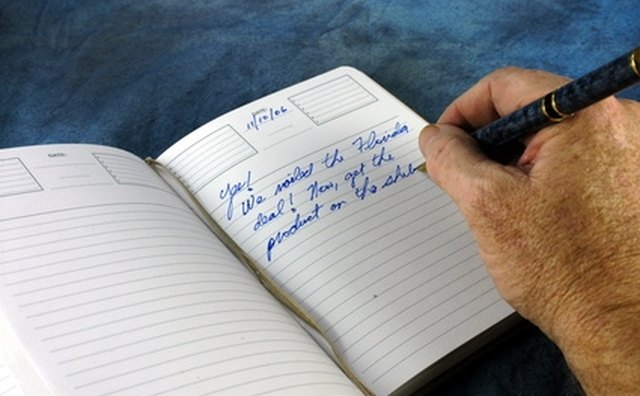 DATE:
DATE:
11/10/06
Yes!
We nailed the Florida
deal! Now, get the
product on the shelv